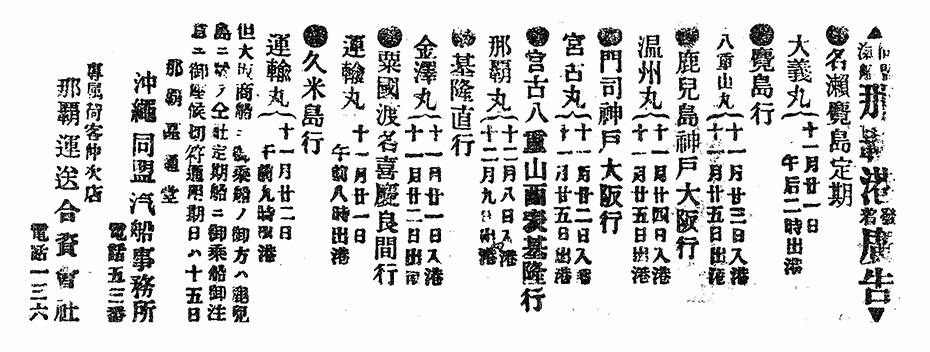 ▲同盟汽船那覇港發着廣告▼
●名瀬鹿島定期
大義丸 十一月廿一日
午后二時出港
●鹿島行
八重山丸 十一月廿三日入港
十一月廿五日出港
●鹿兒島神戸大阪行
温州丸 十一月廿四日入港
十一月廿五日出港
●門司神戸大阪行
宮古丸 十一月廿二日入港
十一月廿五日出港
●宮古八重山西表基隆行
那覇丸 十二月八日入港
十二月九日出港
●基隆直行
金澤丸 十一月廿一日入港
十一月廿二日出港
●粟國渡名喜慶良間行
運輸丸 十一月廿一日
午前八時出港
●久米島行
運輸丸 十一月廿二日
午前九時出港
但大阪商船ニ御乘船ノ御方ハ鹿兒
島ニ於テ仝社定期船ニ御乘船御注
意ニ御座候切符通用期日ハ十五日
那覇 通堂
沖繩同盟汽船事務所
電話五三番
專屬荷客仲次店
那覇運送合資會社
電話一三六